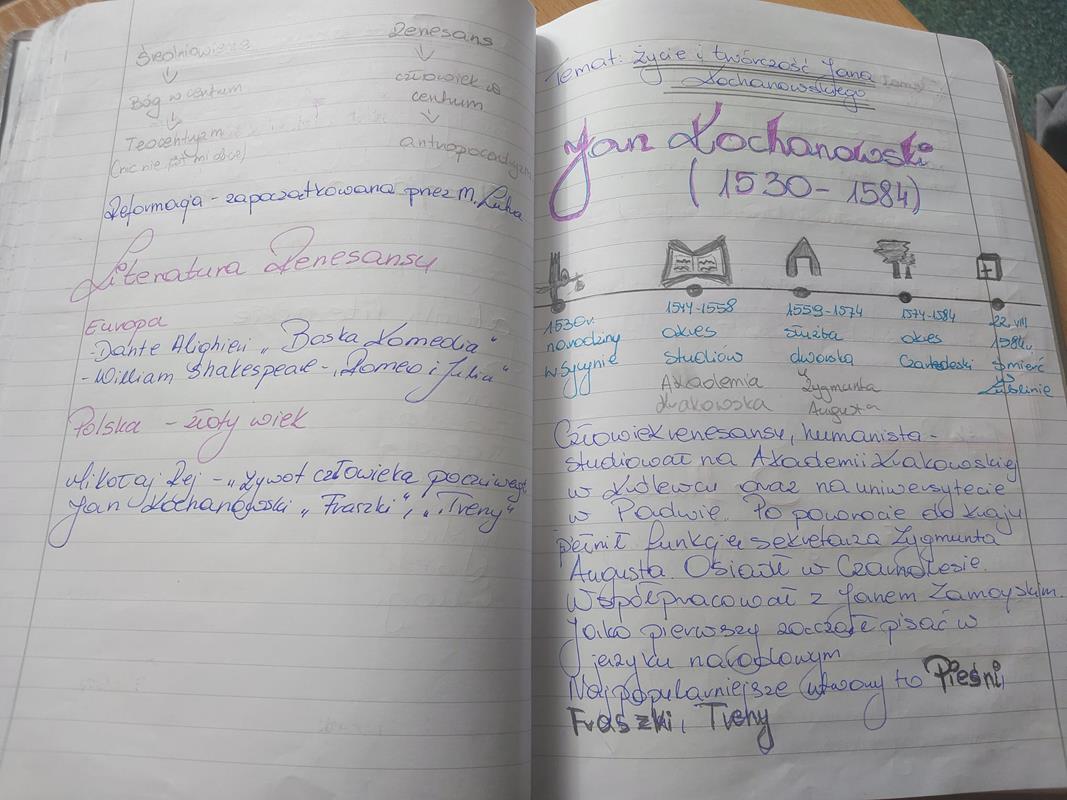 Średniowiecze
Renesans
Bóg w centrum
człowiek w
centrum
Teocentryzm
(nic nie jest mi obce)
Reformacja - zapoczątkowana przez M. Lutra
Literatura Renesansu
Europa
- Dante Alighieri „Boska Komedia"
- William Shakespeare - „Romeo i Julia"
Polska - złoty wiek
Mikołaj Rej - „Żywot człowieka poczciwego"
Jan Kochanowski „Fraszki", „Treny"
Temat: Życie i twórczość Jana
Kochanowskiego
Jan Kochanowski
(1530 - 1584)
1530r. narodziny w Sycynie
1544-1558 okres studiów Akademia Krakowska
1559-1574 służba dworska Zygmunta Augusta
1574-1584 okres
22. VIII 1584r. śmierć w Lublinie
Człowiek renesansu, humanista -
studiował na Akademii Krakowskiej
w Królewcu oraz na uniwersytecie
w Padwie. Po powrocie do kraju
pełnił funkcję sekretarza Zygmunta
Augusta. Osiadł w Czarnolesie.
Współpracował z Janem Zamoyskim.
Jako pierwszy zaczął pisać w
języku narodowym
Najpopularniejsze utwory to Pieśni,
Fraszki, Treny